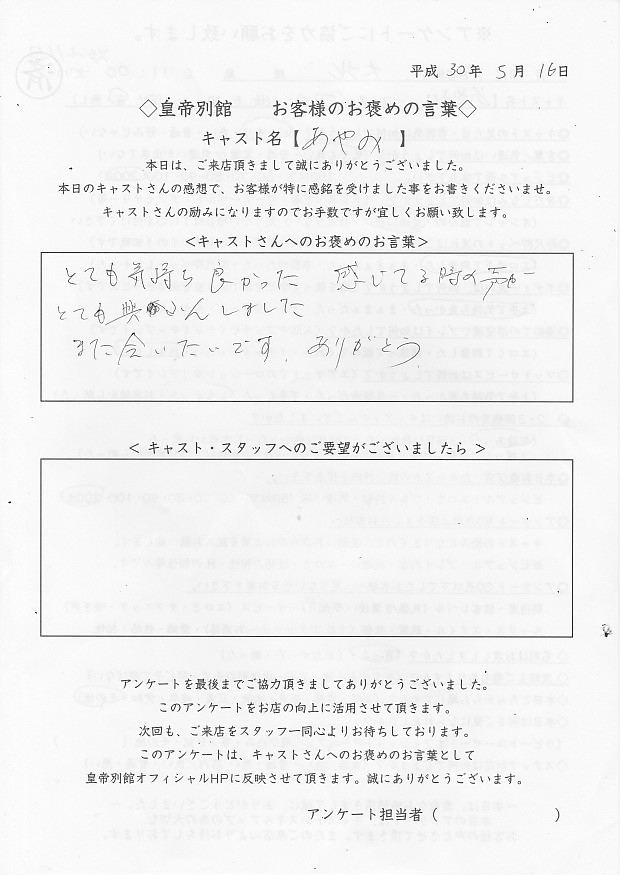 平成 30年 5月 16日
◇皇帝別館　お客様のお褒めの言葉◇
キャスト名【あやみ】
本日は、ご来店頂きまして誠にありがとうございました。
本日のキャストさんの感想で、お客様が特に感銘を受けました事をお書きくださいませ。
キャストさんの励みになりますのでお手数ですが宜しくお願い致します。
<キャストさんへのお褒めのお言葉>
とても気持ち良かった　感じてる時の声が
とても興ふんしました
また会いたいです。ありがとう
< キャスト・スタッフへのご要望がございましたら >
アンケートを最後までご協力頂きましてありがとうございました。
このアンケートをお店の向上に活用させて頂きます。
次回も、ご来店をスタッフ一同心よりお待ちしております。
このアンケートは、キャストさんへのお褒めのお言葉として
皇帝別館オフィシャルHPに反映させて頂きます。誠にありがとうございます。
アンケート担当者（　　　　　）